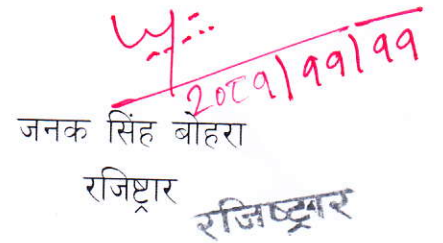 २०८१|११|११
जनक सिंह बोहरा
रजिष्ट्रार
रजिष्ट्रार